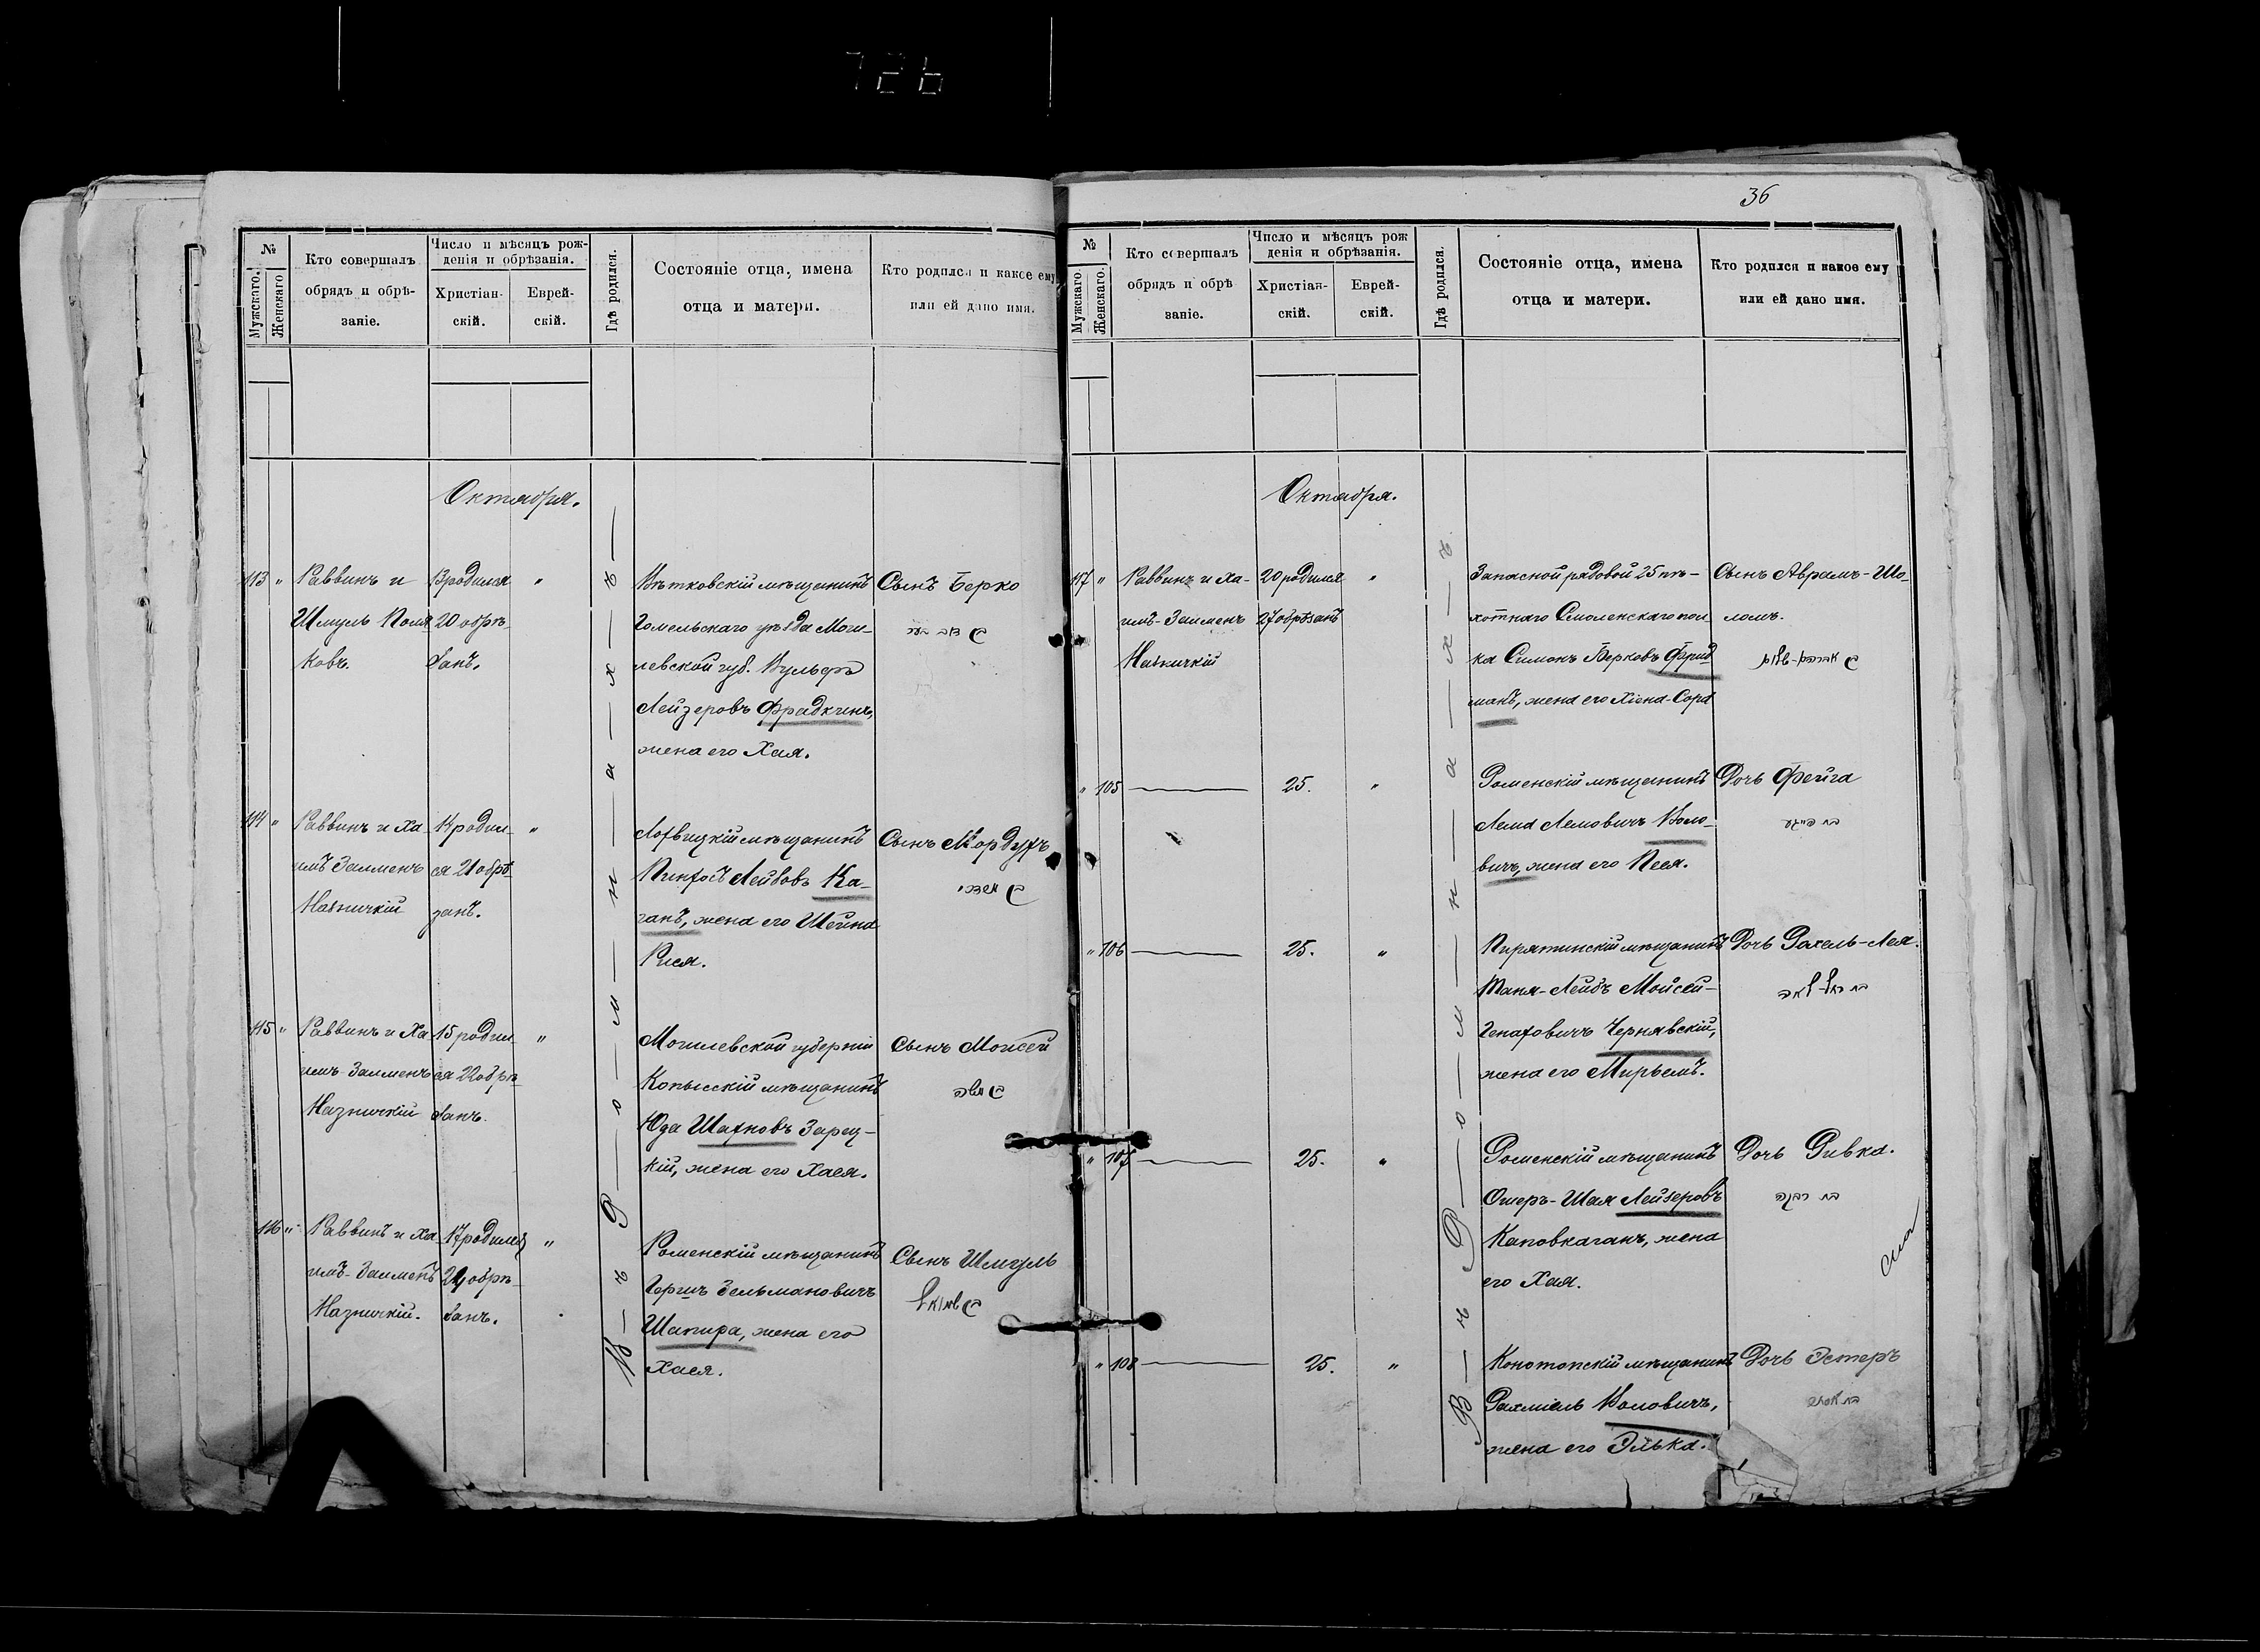 36
№
Мужскаго.
Женскаго
Кто совершалъ
обрядъ и обрѣ-
заніе.
Число и мѣсяцъ рож-
денія и обрѣзанія.
Христіан-
скій.
Еврей-
скій.
Гдѣ родился.
Состояніе отца, имена
отца и матери.
Кто родился и какое ему
или ей дано имя.
Октября.
113 "
Раввинъ и
Шмуль Поля
ковъ.
13 родился
20 обрѣ-
занъ.
"
Вѣтковскій мѣщанинъ
Гомельскаго уѣзда Моги-
левской губ. Вульфъ
Лейзеровъ Фрадкинъ,
жена его Хая.
Сынъ Берко
114 "
Раввинъ и Ха
имъ Залменъ
Назничкій
14 родил-
ся 21 обрѣ-
занъ.
"
Лохвицкій мѣщанинъ
Пинхосъ Лейбовъ Ка-
ганъ, жена его Шейна
Рися.
Сынъ Мордухъ
115 "
Раввинъ и Ха
имъ-Залменъ
Назничкій
15 родил-
ся 22 обрѣ-
занъ.
"
Могилевской губерніи
Копысскій мѣщанинъ
Юда Шахновъ Зарец-
кій, жена его Хася.
Сынъ Моисей
בן משה
116 "
Раввинъ и Ха
имъ-Залменъ
Назничкій.
17 родился
24 обрѣ-
занъ.
"
Роменскій мѣщанинъ
Гершъ Зельмановичъ
Шапира, жена его
Хася.
Сынъ Шмуль
בן שמואל
В—ъ Р—о—м—н—а—х—ъ—
№
Мужскаго
Женскаго.
Кто совершалъ
обрядъ и обрѣ
заніе.
Число и мѣсяцъ рож
денія и обрѣзанія.
Христіан-
скій.
Еврей-
скій.
Гдѣ родился.
Состояніе отца, имена
отца и матери.
Кто родился и какое ему
или ей дано имя.
Октября.
117 "
Раввинъ и Ха-
имъ-Залменъ
Назничкій
20 родился
27 обрѣзанъ
"
Запасной рядовой 25 пѣ-
хотнаго Смоленскаго пол
ка Симонъ Берковъ Фрид
манъ, жена его Хіена-Сора
Сынъ Аврамъ-Шо-
ломъ.
בן אברהם-שלום
" 105
25.
"
Роменскій мѣщанинъ
Лема Лемовичъ Воло-
вичъ, жена его Песя.
Дочь Фейга
בת פייגע
" 106
25.
"
Пирятинскій мѣщанинъ
Таня-Лейбъ Мойсей-
Генаховичъ Чернявскій,
жена его Мирьемъ.
Дочь Рахель-Лея.
בת רחל-לאה
" 107
25.
"
Роменскій мѣщанинъ
Ошеръ-Шая Лейзеровъ
Каповкаганъ, жена
его Хая.
Дочь Ривка.
בת רבקה
" 108
25.
"
Конотопскій мѣщанинъ
Рахміель Воловичъ,
жена его Элька.
Дочь Эстеръ
בת אסתר
В—ъ Р—о—м—н—а—х—ъ.